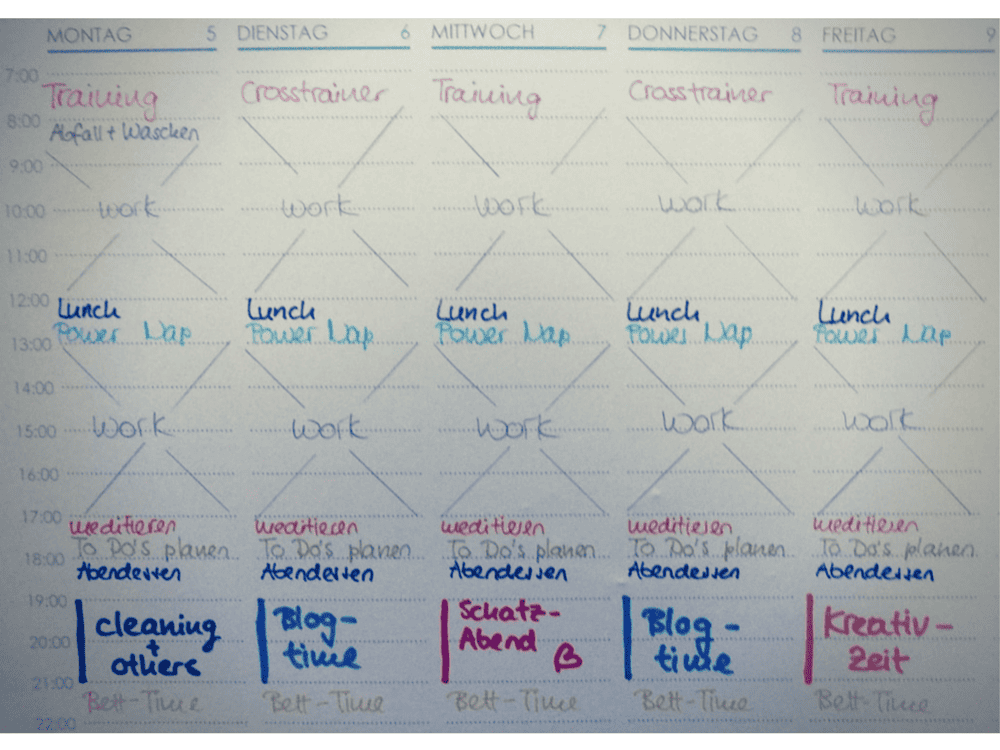 MONTAG 5 DIENSTAG 6 MITTWOCH 7 DONNERSTAG 8 FREITAG 9
7:00
Training Crosstrainer Training Crosstrainer Training
8:00
Abfall + Waschen
9:00
10:00 work work work work work
11:00
12:00
Lunch Lunch Lunch Lunch Lunch
Power Nap Power Nap Power Nap Power Nap Power Nap
13:00
14:00
15:00 work work work work work
16:00
17:00
meditieren meditieren meditieren meditieren meditieren
To Do's planen To Do's planen To Do's planen To Do's planen To Do's planen
18:00
Abendessen Abendessen Abendessen Abendessen Abendessen
19:00
cleaning Blog- Schatz- Blog- Kreativ-
20:00
+ time Abend time Zeit
others
21:00
Bett-Time Bett-Time Bett-Time Bett-Time Bett-Time
22:00